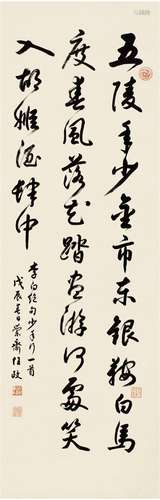 五陵年少金市东银鞍白马
度春风落花踏尽游何处笑
入胡姬酒肆中
李白绝句少年行一首
戊辰春日紫斋任政